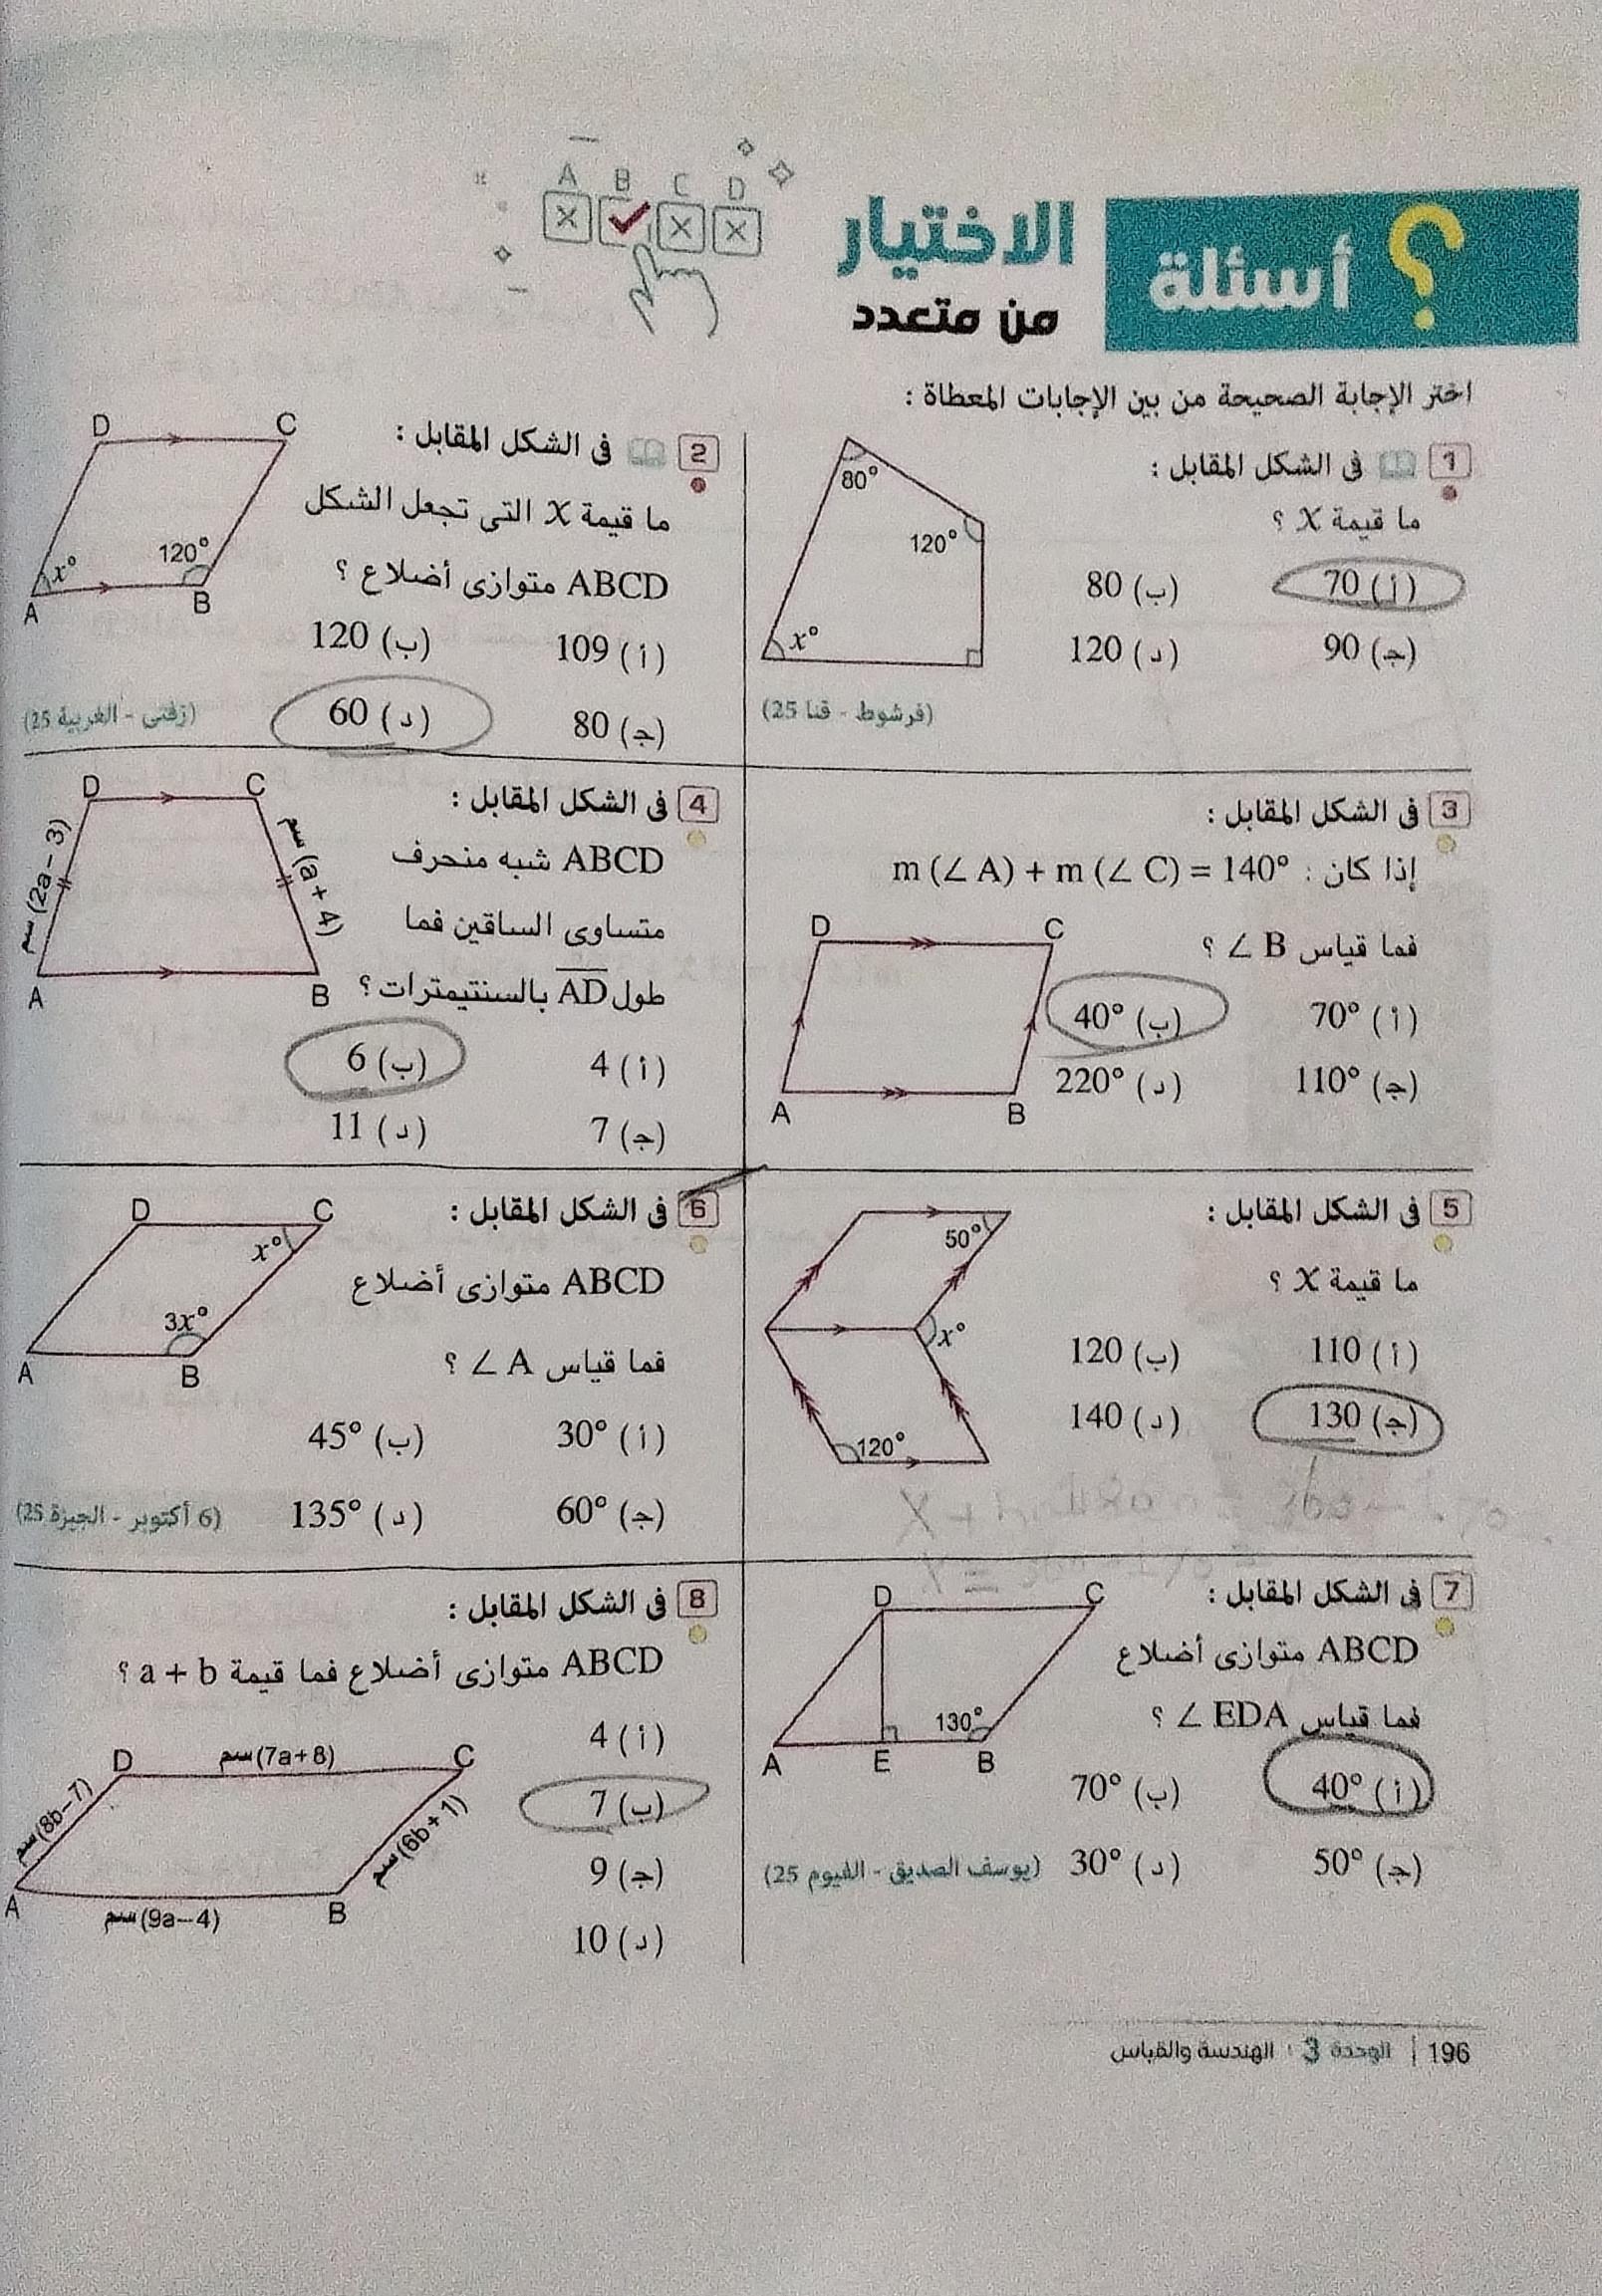 A B C D
؟ أسئلة الاختيار
من متعدد
اختر الإجابة الصحيحة من بين الإجابات المعطاة :
1 فى الشكل المقابل :
ما قيمة x ؟
(أ) 70 (ب) 80
(جـ) 90 (د) 120
80°
120°
x°
(فرشوط - قنا 25)
2 فى الشكل المقابل :
ما قيمة x التى تجعل الشكل
ABCD متوازى أضلاع ؟
(أ) 109 (ب) 120
(جـ) 80 (د) 60
D C
x° 120°
A B
(زفتى - الغربية 25)
3 فى الشكل المقابل :
إذا كان : m (∠ A) + m (∠ C) = 140°
فما قياس ∠ B ؟
(أ) 70° (ب) 40°
(جـ) 110° (د) 220°
D C
A B
4 فى الشكل المقابل :
ABCD شبه منحرف
متساوى الساقين فما
طول AD بالسنتيمترات ؟
(أ) 4 (ب) 6
(جـ) 7 (د) 11
D C
(2a – 3) سم (a + 4) سم
A B
5 فى الشكل المقابل :
ما قيمة x ؟
(أ) 110 (ب) 120
(جـ) 130 (د) 140
50°
x°
120°
6 فى الشكل المقابل :
ABCD متوازى أضلاع
فما قياس ∠ A ؟
(أ) 30° (ب) 45°
(جـ) 60° (د) 135°
D C
x°
3x°
A B
(6 أكتوبر - الجيزة 25)
7 فى الشكل المقابل :
ABCD متوازى أضلاع
فما قياس ∠ EDA ؟
(أ) 40° (ب) 70°
(جـ) 50° (د) 30°
D C
130°
A E B
(يوسف الصديق - الفيوم 25)
8 فى الشكل المقابل :
ABCD متوازى أضلاع فما قيمة a + b ؟
(أ) 4
(ب) 7
(جـ) 9
(د) 10
D (7a+8) سم C
(8b–7) سم (6b+1) سم
A (9a–4) سم B
196 | الوحدة 3 : الهندسة والقياس